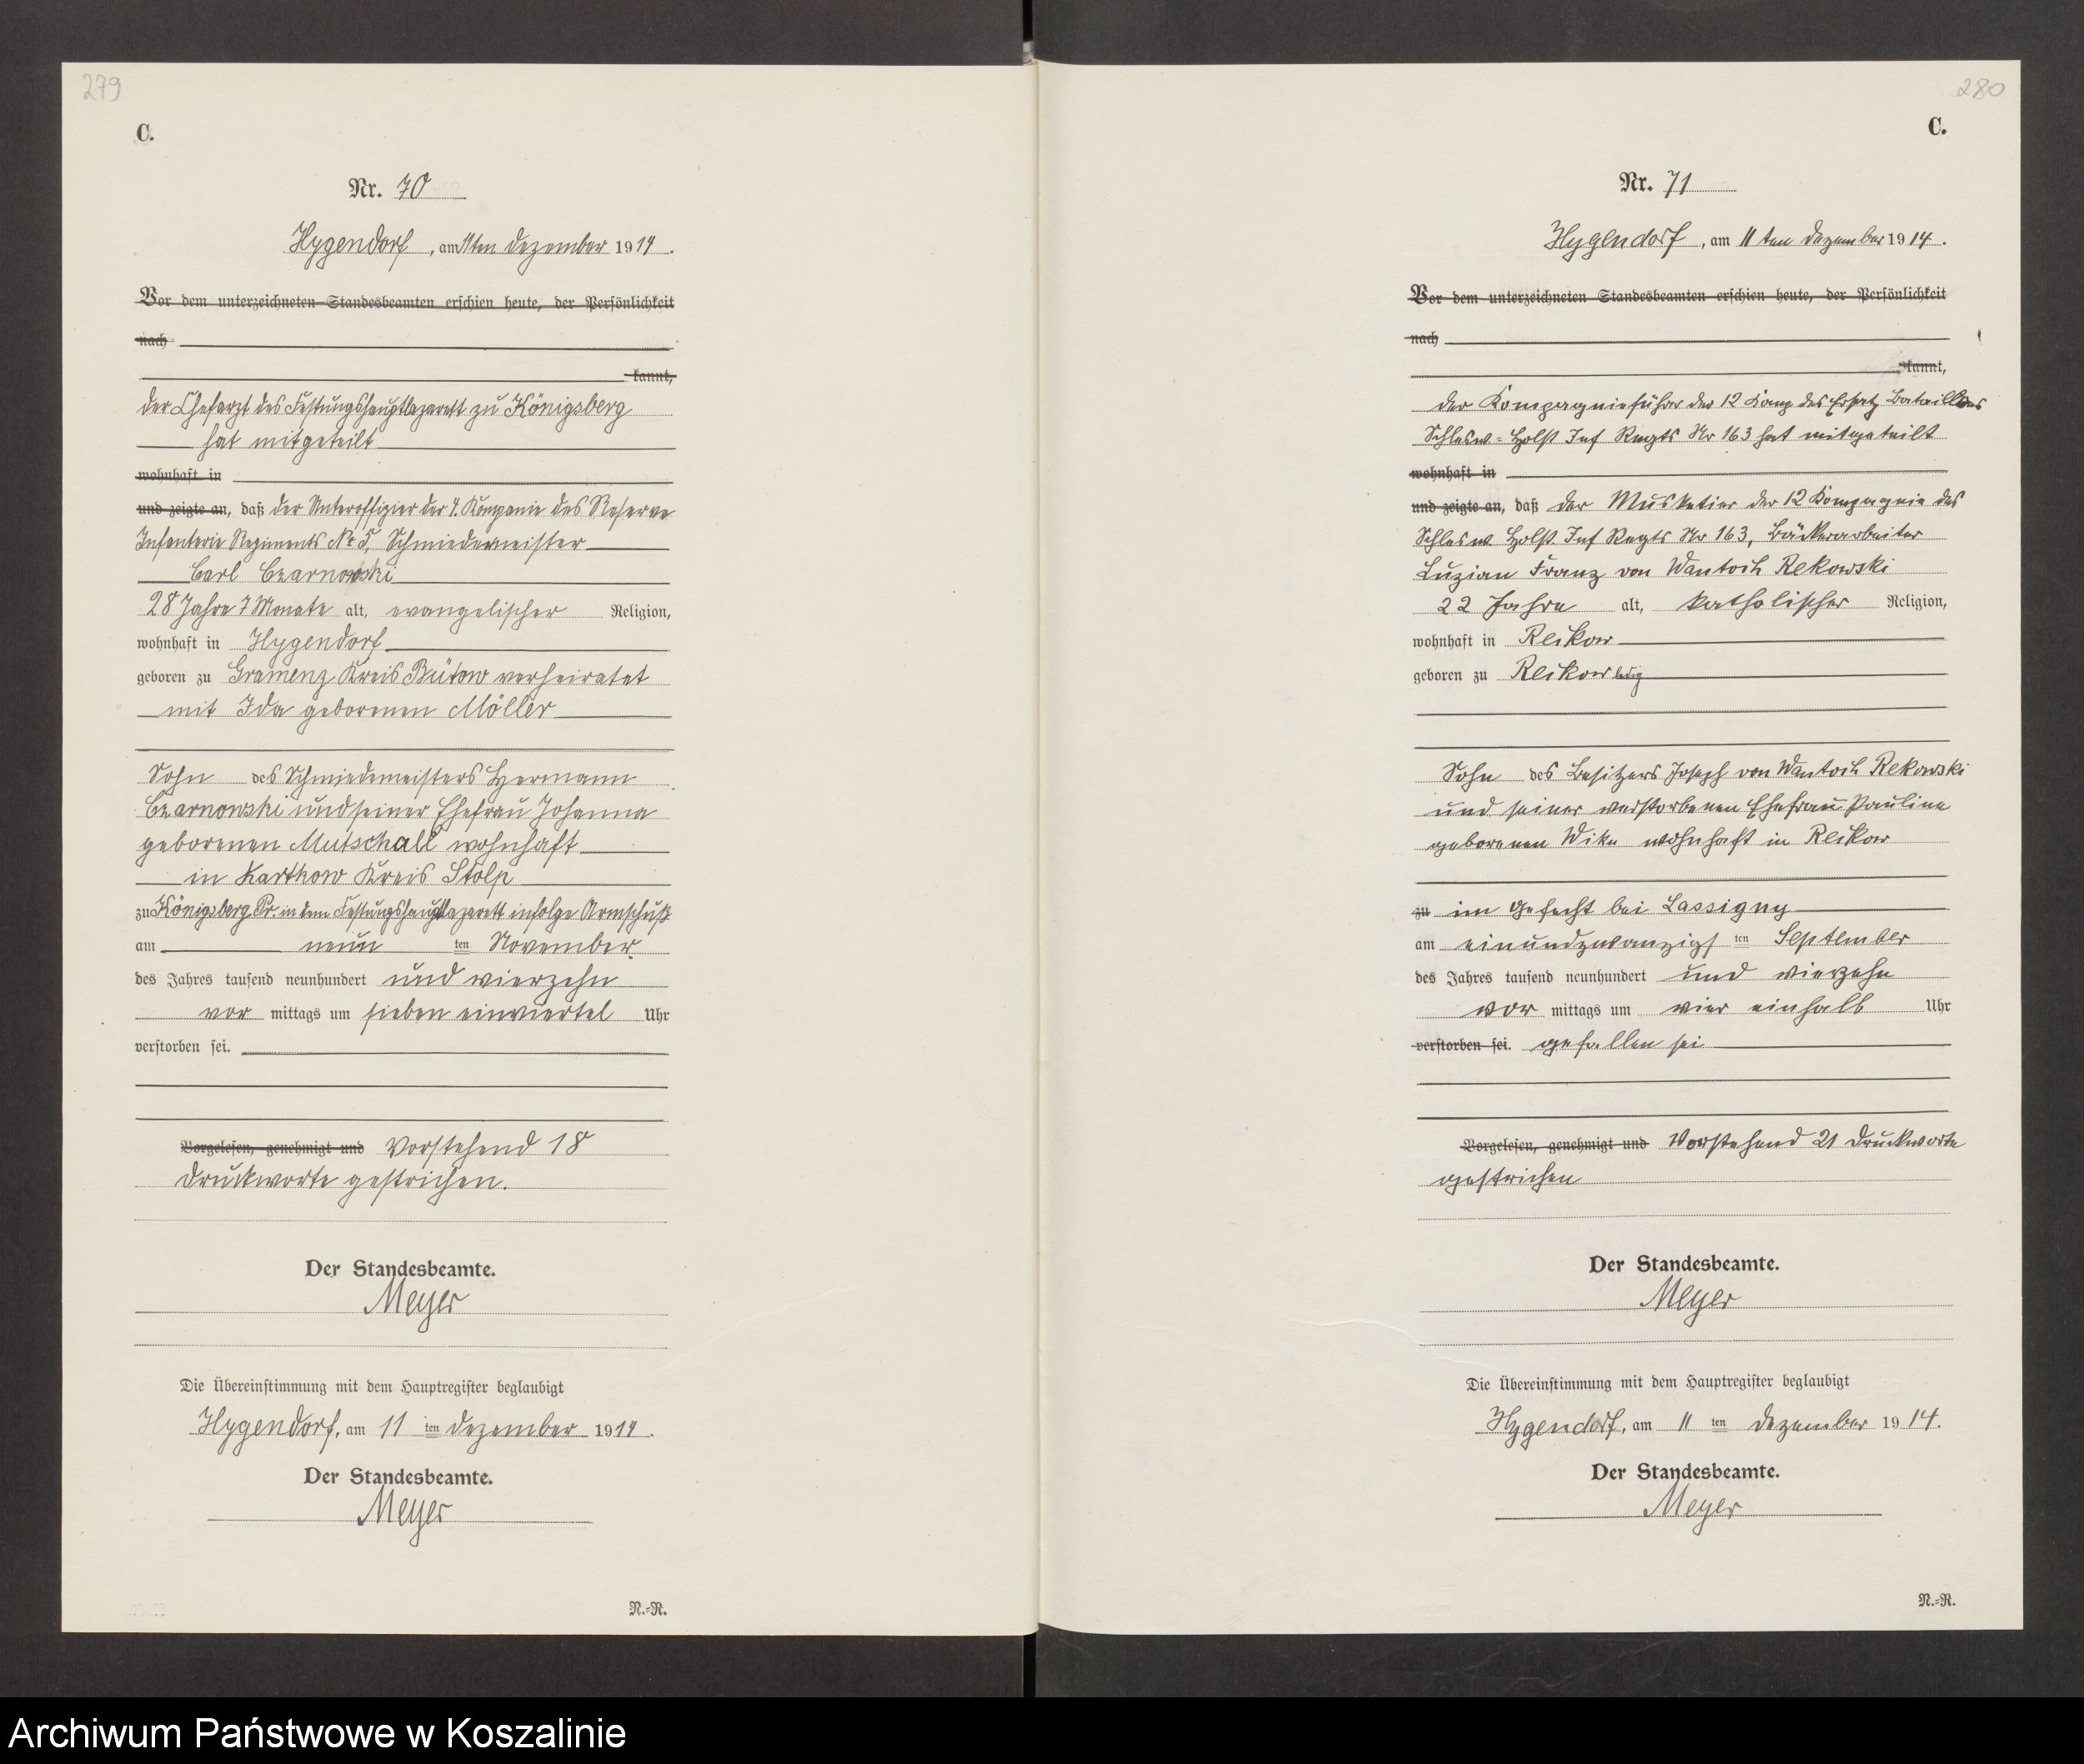 279
C.
Nr. 70
Hygendorf, am 11ten Dezember 1914.
Vor dem unterzeichneten Standesbeamten erschien heute, der Persönlichkeit
nach
kannt,
der Chefarzt des Festungshauptlazarett zu Königsberg
hat mitgeteilt
wohnhaft in
und zeigte an, daß der Unteroffizier der 4. Kompanie des Reserve
Infanterie Regiments No 5, Schmiedemeister
Carl Czarnowski
28 Jahre 7 Monate alt, evangelischer Religion,
wohnhaft in Hygendorf
geboren zu Gramenz Kreis Bütow verheiratet
mit Ida geborenen Möller
Sohn des Schmiedemeisters Hermann
Czarnowski und seiner Ehefrau Johanna
geborenen Mutschall wohnhaft
in Karthow Kreis Stolp
zu Königsberg Pr. in dem Festungshauptlazarett infolge Armschuß
am neun ten November
des Jahres tausend neunhundert und vierzehn
vor mittags um sieben einviertel Uhr
verstorben sei.
Vorgelesen, genehmigt und Vorstehend 18
Druckworte gestrichen.
Der Standesbeamte.
Meyer
Die Übereinstimmung mit dem Hauptregister beglaubigt
Hygendorf, am 11 ten Dezember 1914.
Der Standesbeamte.
Meyer
N.=R.
280
C.
Nr. 71
Hygendorf, am 11 ten Dezember 1914.
Vor dem unterzeichneten Standesbeamten erschien heute, der Persönlichkeit
nach
kannt,
der Kompagnieführer der 12 Komp des Ersatz Bataillons
Schlesw=Holst Inf Regts Nr 163 hat mitgeteilt
wohnhaft in
und zeigte an, daß der Musketier der 12 Kompagnie des
Schlesw Holst Inf Regts Nr 163, Bäckerarbeiter
Luzian Franz von Wantoch Rekowski
22 Jahre alt, katholischer Religion,
wohnhaft in Reikow
geboren zu Reikow ledig
Sohn des Besitzers Joseph von Wantoch Rekowski
und seiner verstorbenen Ehefrau Pauline
geborenen Wike wohnhaft in Reikow
zu im Gefecht bei Lassigny
am einundzwanzigs ten September
des Jahres tausend neunhundert und vierzehn
vor mittags um vier einhalb Uhr
verstorben sei. gefallen sei
Vorgelesen, genehmigt und Vorstehend 21 Druckworte
gestrichen
Der Standesbeamte.
Meyer
Die Übereinstimmung mit dem Hauptregister beglaubigt
Hygendorf, am 11 ten Dezember 1914.
Der Standesbeamte.
Meyer
N.=R.
Archiwum Państwowe w Koszalinie